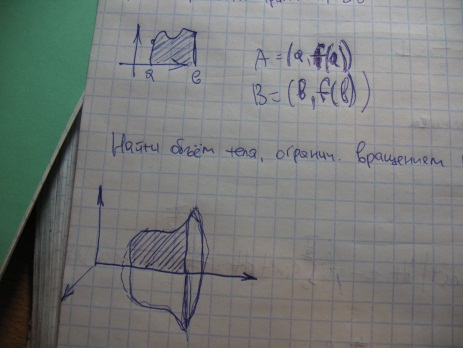 a в
A = (a, f(a))
B = (в, f(в))
Найти объём тела, огранич. вращением